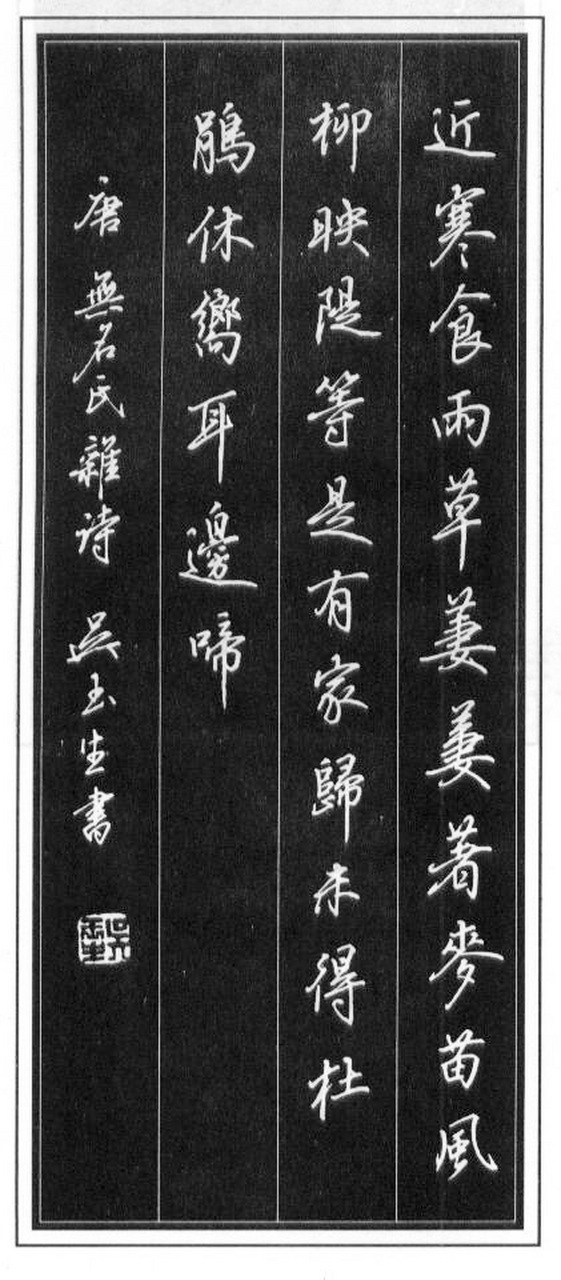 近寒食雨草萋萋著麥苗風
柳映隄等是有家歸未得杜
鵑休嚮耳邊啼
唐無名氏雜诗 吴玉生書
吴玉生